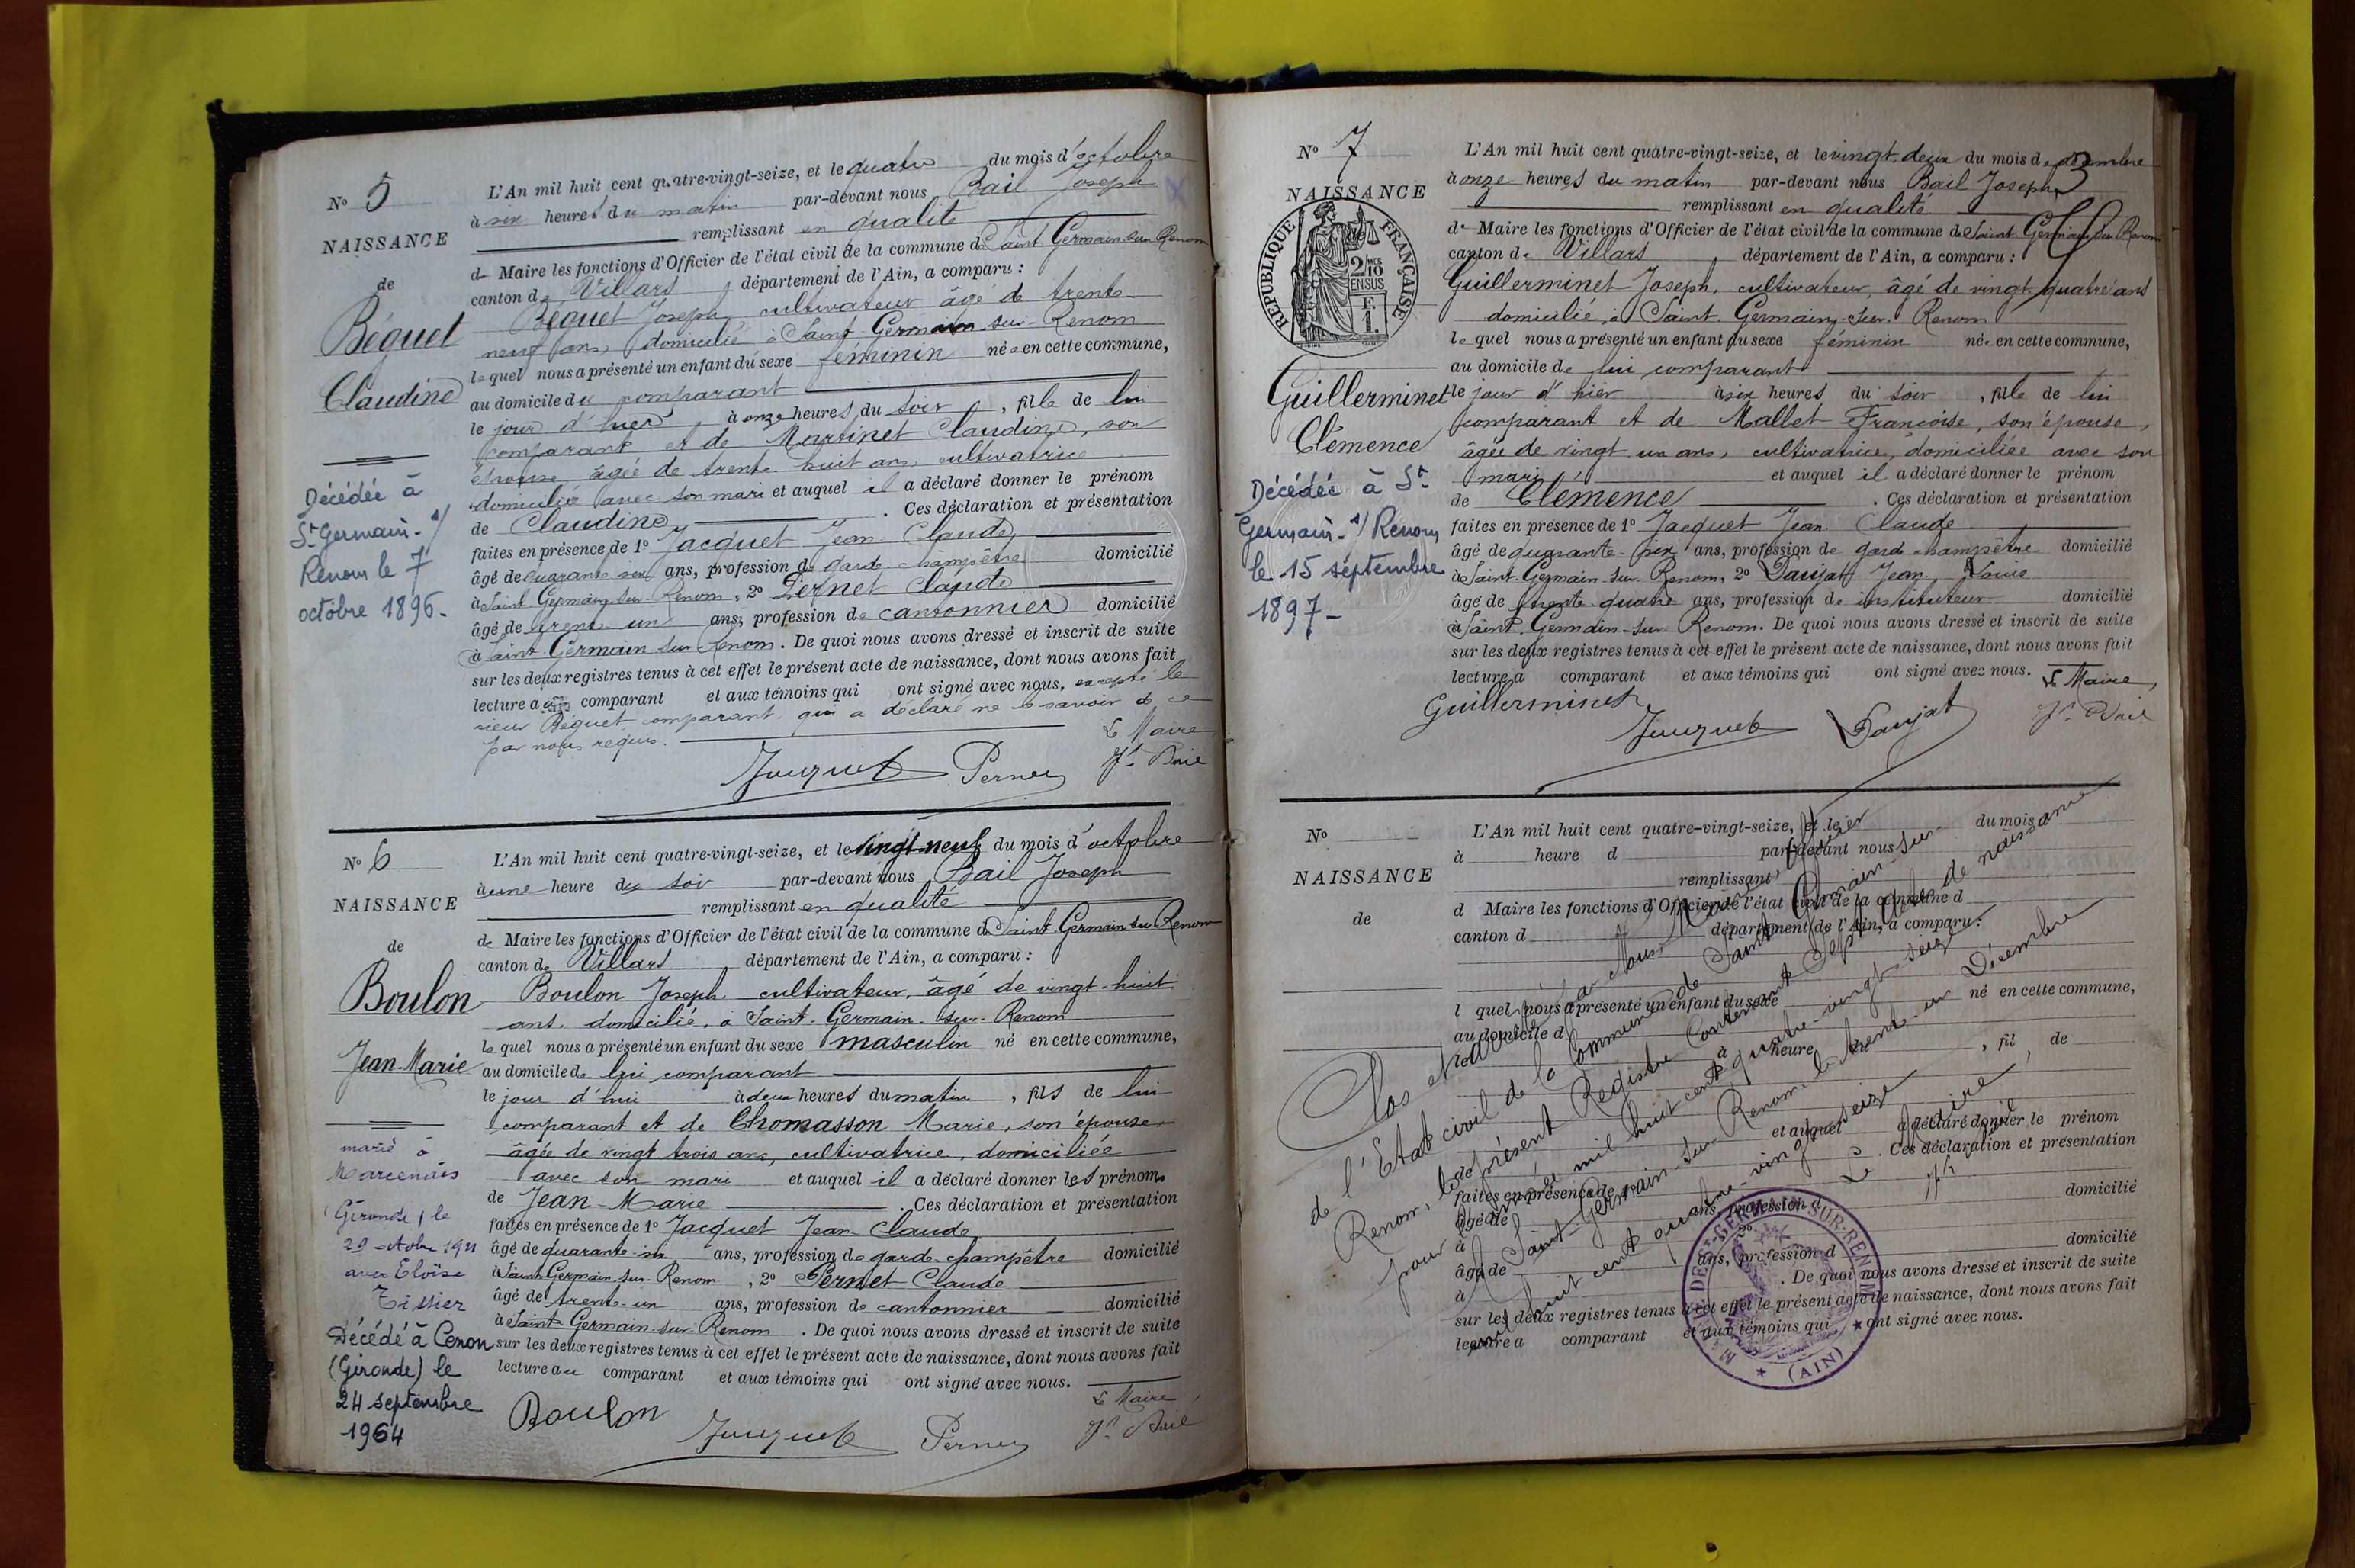 N° 5
NAISSANCE
de
Béguet
Claudine
Décédée à
St Germain-s/
Renom le 7
octobre 1896.
L'An mil huit cent quatre-vingt-seize, et le quatre du mois d'octobre
à six heures du matin par-devant nous Bail Joseph
remplissant en qualité
de Maire les fonctions d'Officier de l'état civil de la commune de Saint Germain sur Renom
canton de Villars, département de l'Ain, a comparu :
Béguet Joseph, cultivateur âgé de trente
neuf ans, domicilié à Saint-Germain-sur-Renom
lequel nous a présenté un enfant du sexe féminin née en cette commune,
au domicile du comparant
le jour d'hier à onze heures du soir, fille de lui
comparant et de Martinet Claudine, son
épouse âgée de trente huit ans, cultivatrice
domiciliée avec son mari et auquel il a déclaré donner le prénom
de Claudine. Ces déclaration et présentation
faites en présence de 1° Jacquet Jean Claude
âgé de quarante six ans, profession de garde-champêtre domicilié
à Saint Germain-sur-Renom, 2° Pernet Claude
âgé de trente un ans, profession de cantonnier domicilié
à Saint-Germain sur Renom. De quoi nous avons dressé et inscrit de suite
sur les deux registres tenus à cet effet le présent acte de naissance, dont nous avons fait
lecture au comparant et aux témoins qui ont signé avec nous, excepté le
sieur Béguet comparant qui a déclaré ne le savoir de ce
par nous requis.
Le Maire
Jacquet Pernet Jh Bail
N° 6
NAISSANCE
de
Boulon
Jean-Marie
marié à
Marcenais
(Gironde) le
29 octobre 1921
avec Eloïse
Tissier
Décédé à Cenon
(Gironde) le
24 septembre
1964
L'An mil huit cent quatre-vingt-seize, et le vingt-neuf du mois d'octobre
à une heure du soir par-devant nous Bail Joseph
remplissant en qualité
de Maire les fonctions d'Officier de l'état civil de la commune de Saint Germain sur Renom
canton de Villars, département de l'Ain, a comparu :
Boulon Joseph cultivateur, âgé de vingt-huit
ans, domicilié, à Saint-Germain-sur-Renom
lequel nous a présenté un enfant du sexe masculin né en cette commune,
au domicile de lui comparant
le jour d'hui à deux heures du matin, fils de lui
comparant et de Thomasson Marie, son épouse
âgée de vingt trois ans, cultivatrice, domiciliée
avec son mari et auquel il a déclaré donner les prénoms
de Jean-Marie. Ces déclaration et présentation
faites en présence de 1° Jacquet Jean-Claude
âgé de quarante-six ans, profession de garde-champêtre domicilié
à Saint Germain-sur-Renom, 2° Pernet Claude
âgé de trente-un ans, profession de cantonnier domicilié
à Saint Germain-sur-Renom. De quoi nous avons dressé et inscrit de suite
sur les deux registres tenus à cet effet le présent acte de naissance, dont nous avons fait
lecture au comparant et aux témoins qui ont signé avec nous.
Le Maire
Boulon Jacquet Pernet Jh Bail
N° 7
NAISSANCE
RÉPUBLIQUE FRANÇAISE
Guillerminet
Clémence
Décédée à St
Germain-s/Renom
le 15 septembre
1897-
L'An mil huit cent quatre-vingt-seize, et le vingt-deux du mois de décembre
à onze heures du matin par-devant nous Bail Joseph
remplissant en qualité
de Maire les fonctions d'Officier de l'état civil de la commune de Saint Germain sur Renom
canton de Villars, département de l'Ain, a comparu :
Guillerminet Joseph, cultivateur, âgé de vingt-quatre ans
domicilié, à Saint-Germain-sur-Renom
lequel nous a présenté un enfant du sexe féminin née en cette commune,
au domicile de lui comparant
le jour d'hier à six heures du soir, fille de lui
comparant et de Mallet Françoise, son épouse,
âgée de vingt un ans, cultivatrice, domiciliée avec son
mari et auquel il a déclaré donner le prénom
de Clémence. Ces déclaration et présentation
faites en présence de 1° Jacquet Jean Claude
âgé de quarante-six ans, profession de garde-champêtre domicilié
à Saint-Germain-sur-Renom, 2° Daujat Jean Louis
âgé de trente quatre ans, profession de instituteur domicilié
à Saint-Germain-sur Renom. De quoi nous avons dressé et inscrit de suite
sur les deux registres tenus à cet effet le présent acte de naissance, dont nous avons fait
lecture a comparant et aux témoins qui ont signé avec nous. Le Maire,
Guillerminet Jacquet Daujat Jh Bail
N°
NAISSANCE
de
L'An mil huit cent quatre-vingt-seize, et le du mois
à heure d par-devant nous
remplissant
d Maire les fonctions d'Officier de l'état civil de la commune d
canton d département de l'Ain, a comparu :
l quel nous a présenté un enfant du sexe né en cette commune,
au domicile d
à heure , fil de
et auquel a déclaré donner le prénom
de . Ces déclaration et présentation
faites en présence de
âgé de ans, profession d domicilié
à 2°
âgé de ans, profession d domicilié
à . De quoi nous avons dressé et inscrit de suite
sur les deux registres tenus à cet effet le présent acte de naissance, dont nous avons fait
lecture a comparant et aux témoins qui ont signé avec nous.
Clos et arrêté par Nous Maire, officier
de l'Etat civil de la Commune de Saint Germain-sur-
Renom, le présent Registre contenant sept actes de naissance
pour l'année mil huit cent quatre-vingt-seize
A Saint-Germain-sur Renom le trente-un Décembre
mil huit cent quatre-vingt-seize
Le Maire,
MAIRIE DE ST-GERMAIN-SUR-RENOM
(AIN)